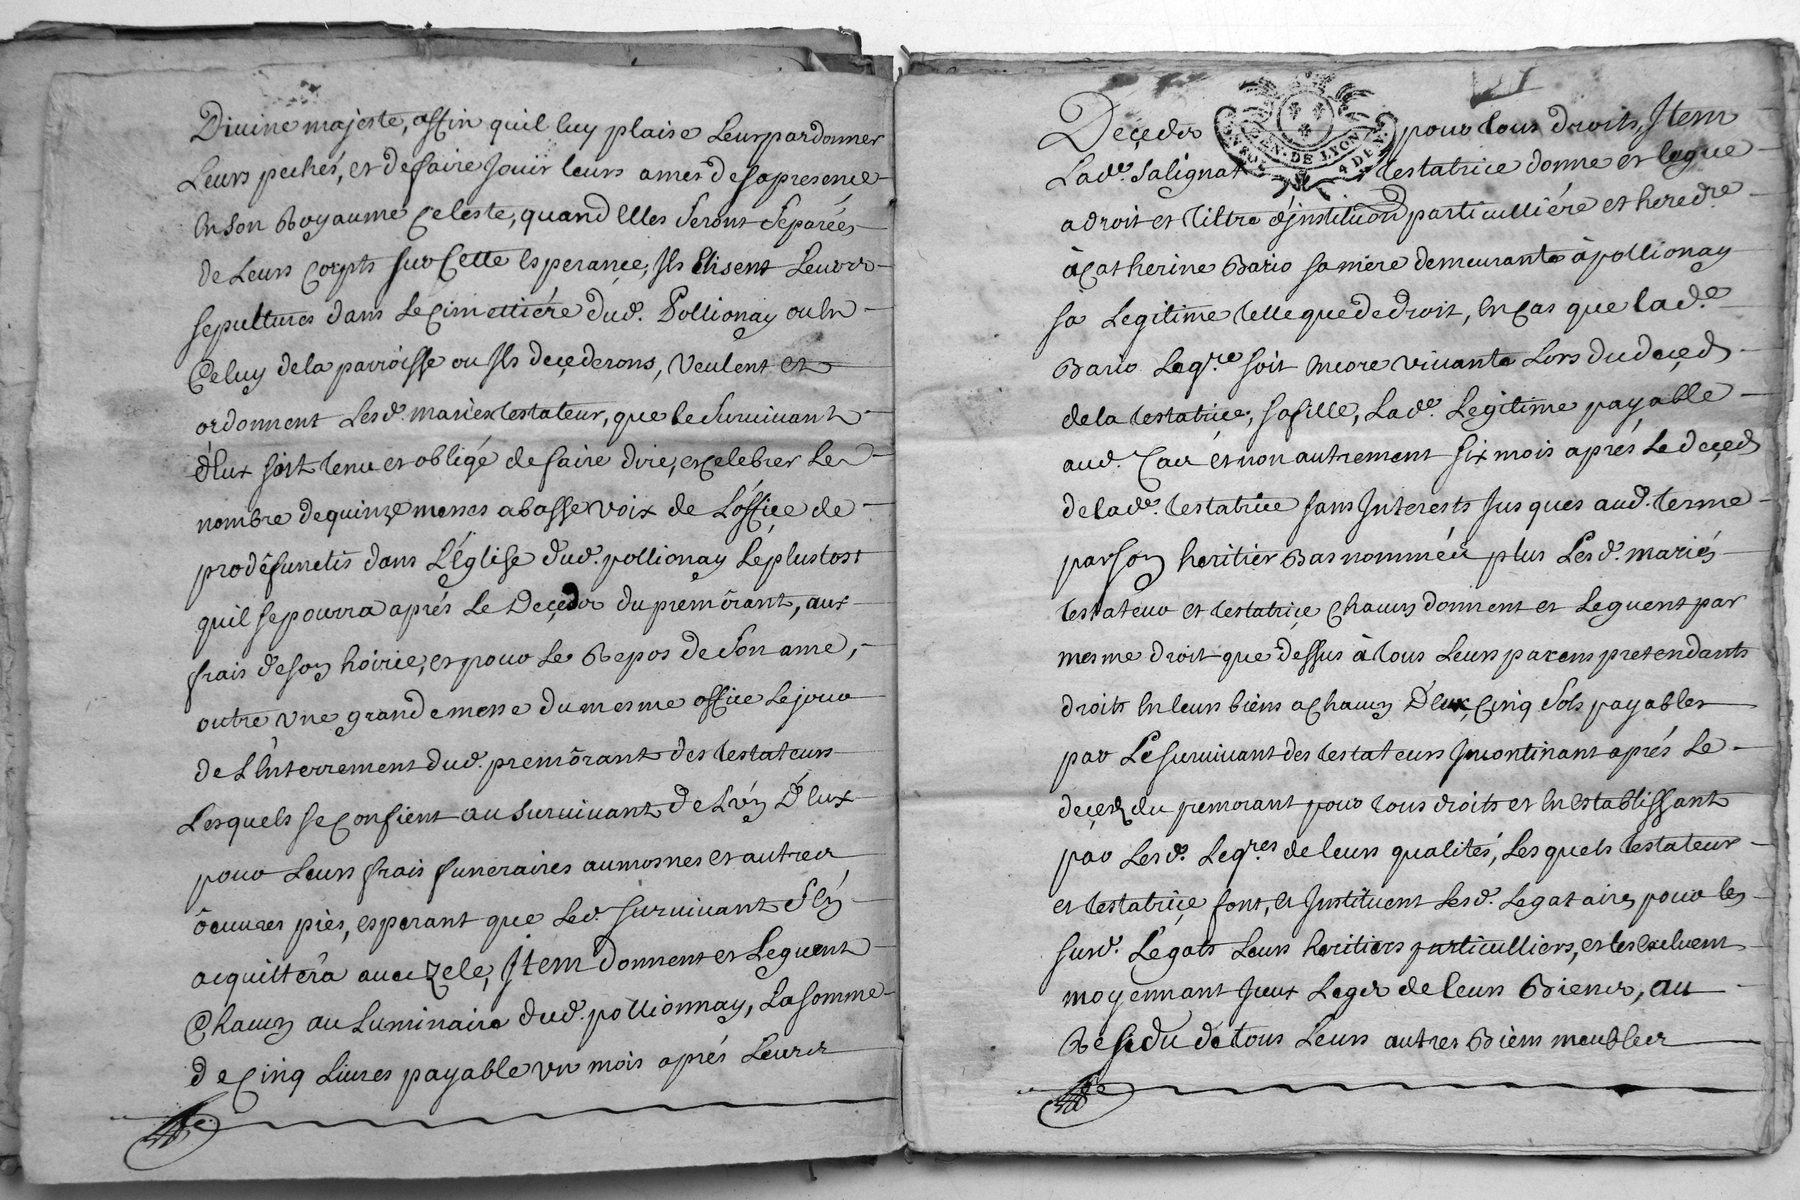 Divine majesté, affin quil luy plaise Leurs pardonner
Leurs pechés, et de faire Jouir leurs ames de sa presence
En son Royaume Celeste, quand Elles seront separées
de Leurs Corpts sur Cette Esperance, Ils Elisent Leurs
sepultures dans Le Cimettiére dud. Pollionay ou En
Celuy de la parroisse ou Ils deçederons, Veulent et
ordonnent Lesd. mariés testateur, que le survivant
d'Eux soit tenu et obligé de faire dire, et celebrer le
nombre de quinze messes a basse voix de L'office de
pro défunctis dans L'Église dud. pollionay Le plustost
quil se pourra aprés Le Deçedz du premôrant, aux
frais de son hoirie, et pour Le Repos de son ame,
outre Une grande messe du mesme office Le jour
de L'Enterrement dud. premôrant des testateurs
Lesquels se Confient au survivant de L'vn D'Eux
pour Leurs frais funeraires aumosnes et autres
ôeuvres pies, esperant que Led. survivant s'En
acquittera avec zele, Item donnent et Leguent
Chacun au Luminaire dud. pollionnay, La somme
de Cinq Livres payable un mois aprés Leurs
121
Deçedz pour tous droits, Item
GEN. DE LYON
4 DEN.
Lade. Salignat testatrice donne et legue
a droit et tiltre d'institution particulliére et heredre
à Catherine Bario sa mére demeurante à pollionay
sa Legitime telle que de droit, En Cas que lade
Bario Legre soit Encore vivante Lors du deçed
de la testatrice, sa fille, Lade. Legitime payable
aud. Cas et non autrement six mois aprés Le deçed
de lade. testatrice sans Interests Jusques aud. terme
par son heritier Bas nommée plus Lesd. mariés
testateur et testatrice Chacun donnent et Leguent par
mesme droit que dessus à tous Leurs parens pretendants
droits En leurs biens a Chacun D'Eux, Cinq sols payables
par Le survivant des testateurs Incontinant aprés Le
deçedz du premorant pour tous droits et En Establissant
par Lesd. Legres de leurs qualités, Lesquels testateur
et testatrice font, et Instituent Lesd. Legataires pour les
susd. Légats Leurs heritiers particulliers, et les Excluent
moyennant Iceux Legs de leurs Biens, au
Residu de tous Leurs autres Biens meubles